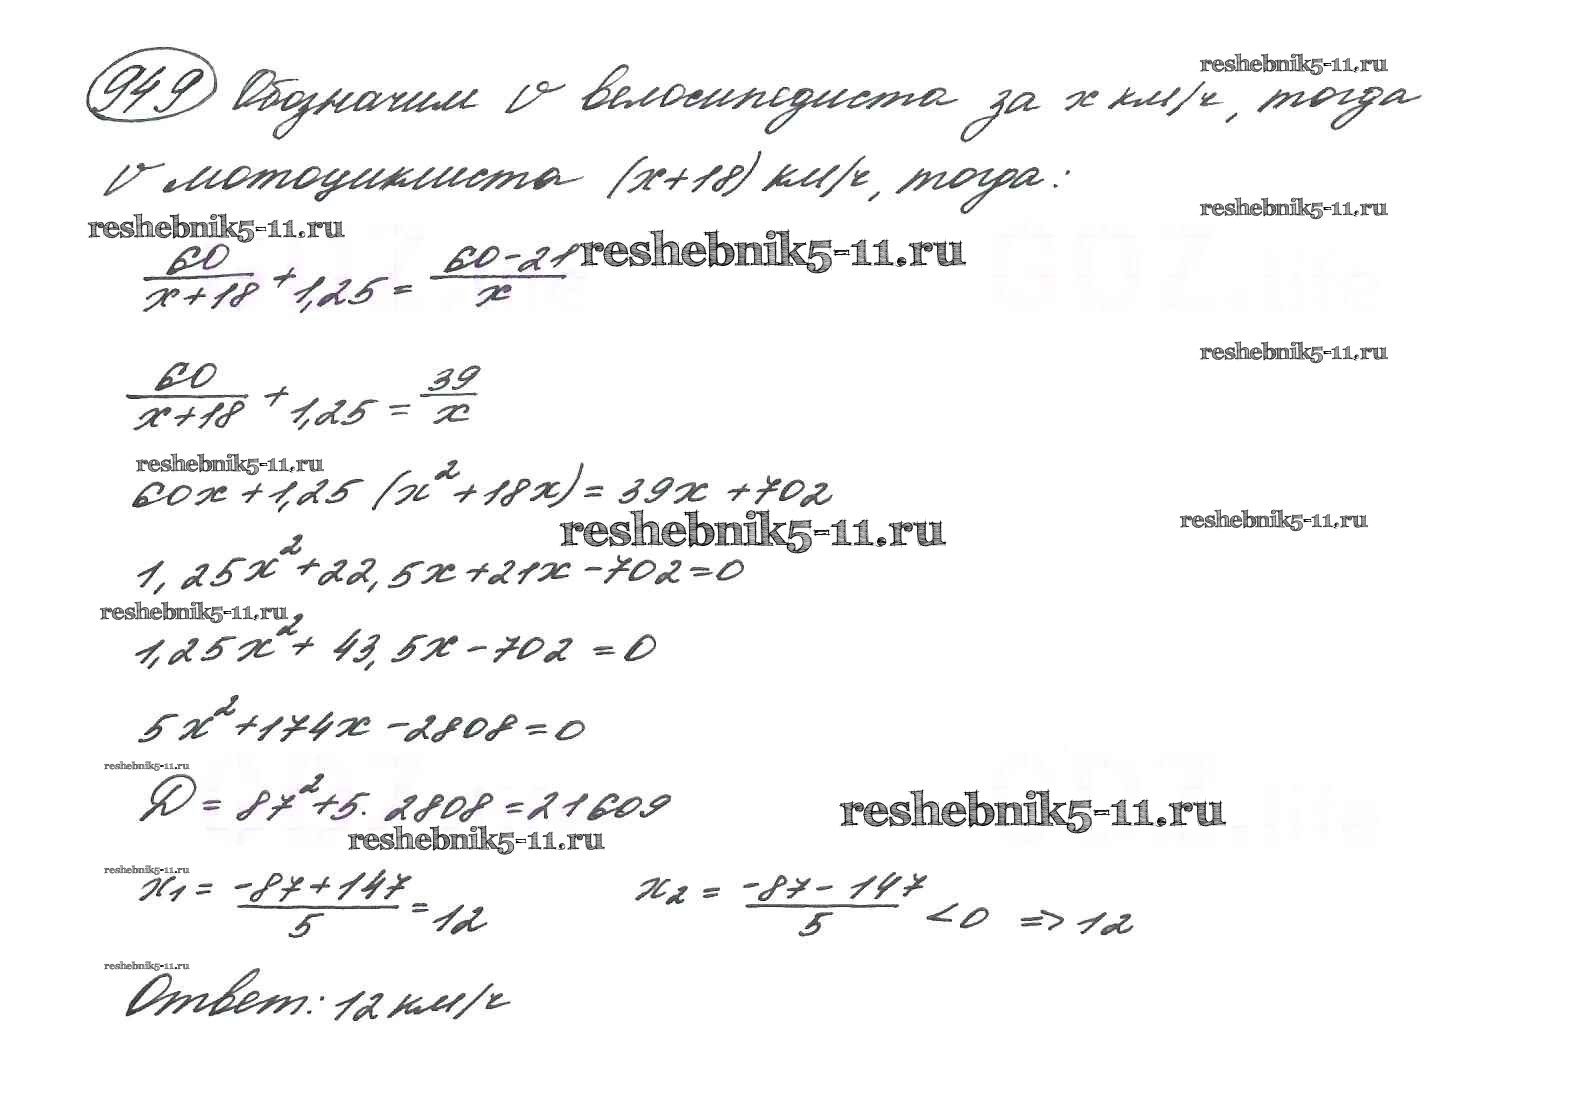 949 Обозначим v велосипедиста за x км/ч, тогда
reshebnik5-11.ru
v мотоциклиста (x+18) км/ч, тогда:
reshebnik5-11.ru
reshebnik5-11.ru
60/(x+18) + 1,25 = (60-21)/x
reshebnik5-11.ru
60/(x+18) + 1,25 = 39/x
reshebnik5-11.ru
reshebnik5-11.ru
60x+1,25 (x²+18x) = 39x +702
reshebnik5-11.ru
reshebnik5-11.ru
1,25x²+22,5x+21x-702=0
reshebnik5-11.ru
1,25x²+ 43,5x-702 =0
5x²+174x-2808=0
reshebnik5-11.ru
D = 87²+5. 2808=21609
reshebnik5-11.ru
reshebnik5-11.ru
reshebnik5-11.ru
x₁ = (-87+147)/5 = 12 x₂ = (-87-147)/5 <0 => 12
reshebnik5-11.ru
Ответ: 12 км/ч